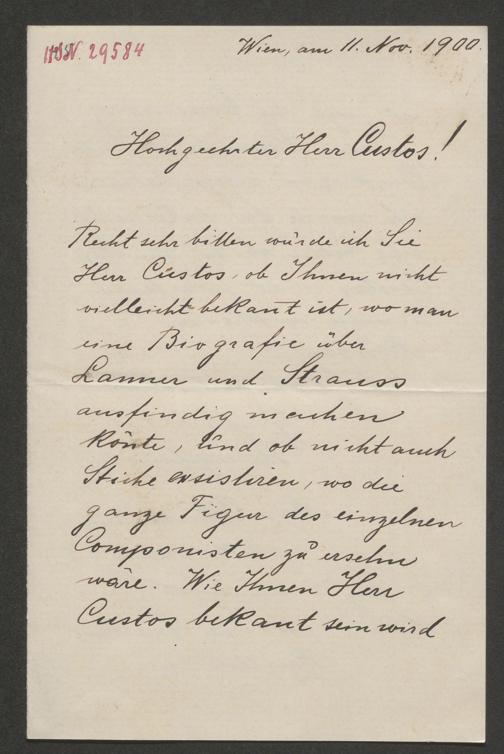 I.N. 29584
Wien, am 11. Nov. 1900.
Hochgeehrter Herr Custos!
Recht sehr bitten würde ich Sie
Herr Custos, ob Ihnen nicht
vielleicht bekant ist, wo man
eine Biografie über
Lanner und Strauss
ausfindig machen
könte, und ob nicht auch
Stiche exsistiren, wo die
ganze Figur des einzelnen
Componisten zu ersehn
wäre. Wie Ihnen Herr
Custos bekant sein wird